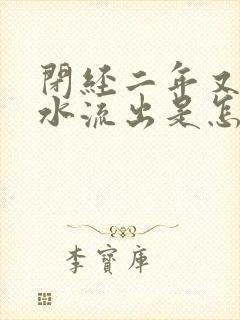 閉經二年又
水流出是怎
李寶庫